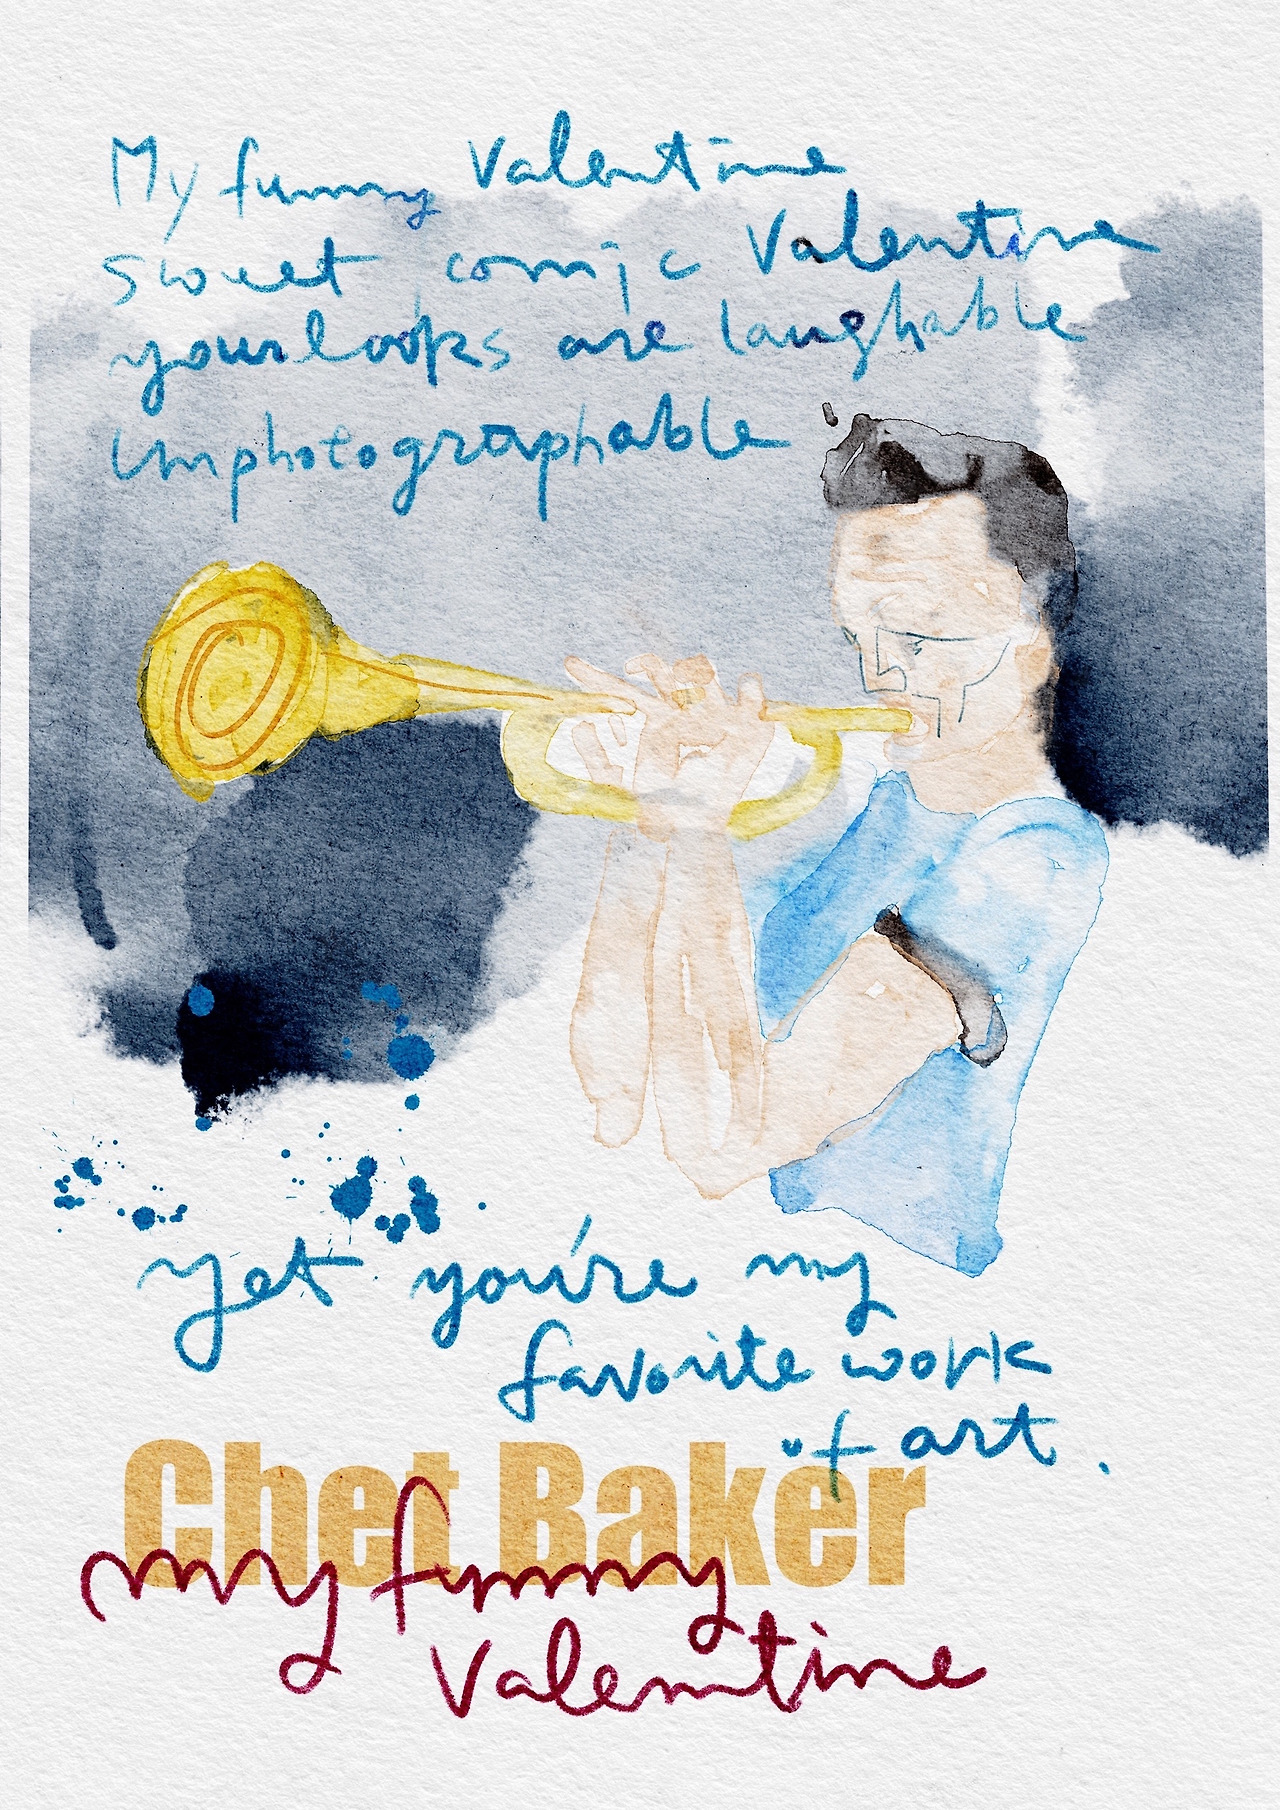 My funny Valentine
sweet comic Valentine
your looks are laughable
Unphotographable
yet you're my
favorite work
of art.
Chet Baker
my funny
Valentine